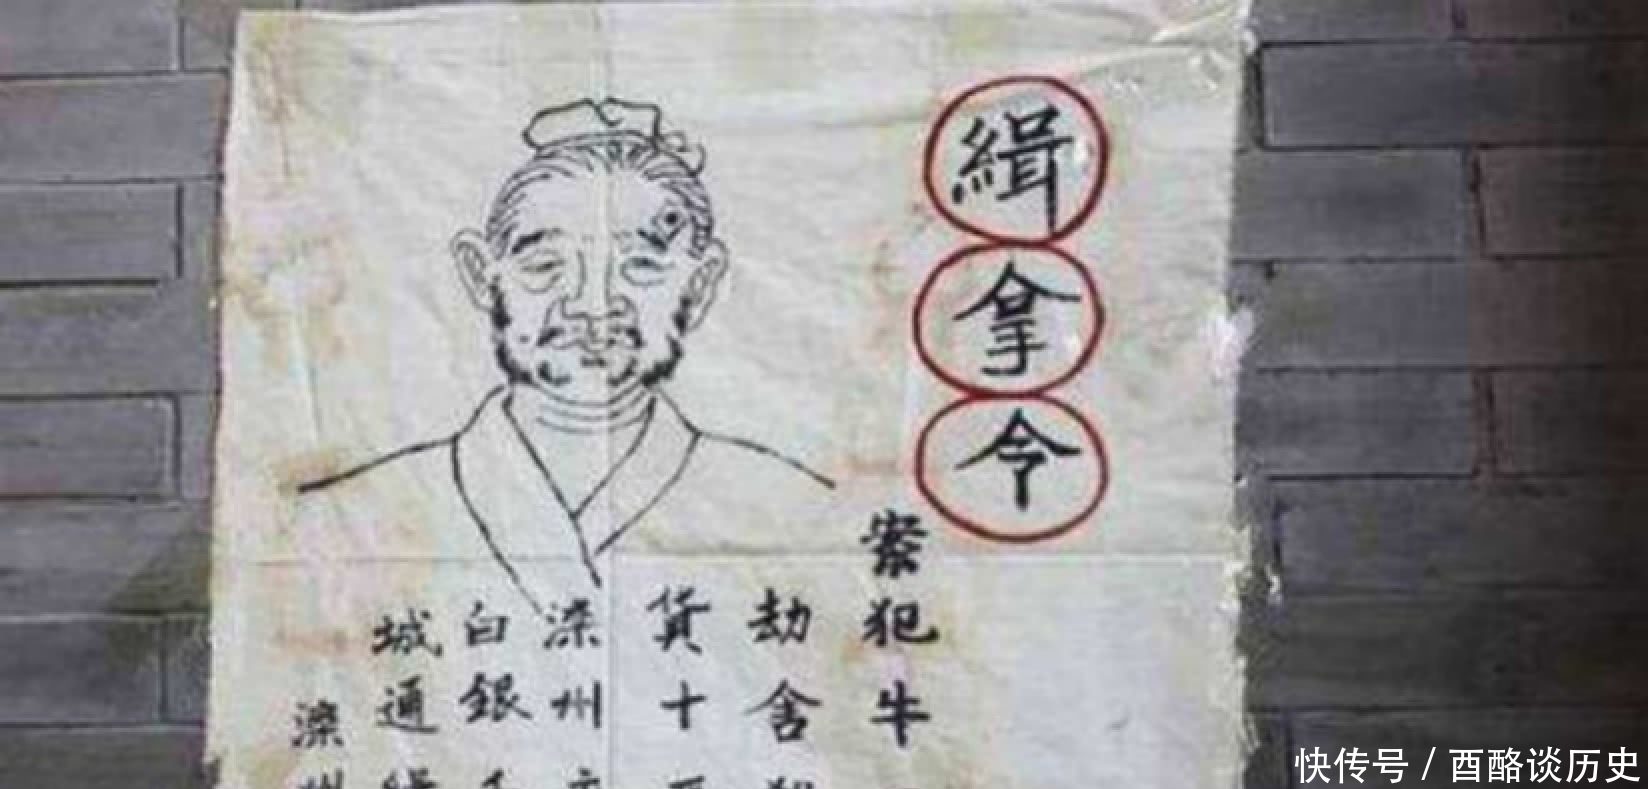 緝拿令
案犯牛
劫舍
貨十
滦州
白銀千
城通緝
滦州
快传号 / 酉酪谈历史